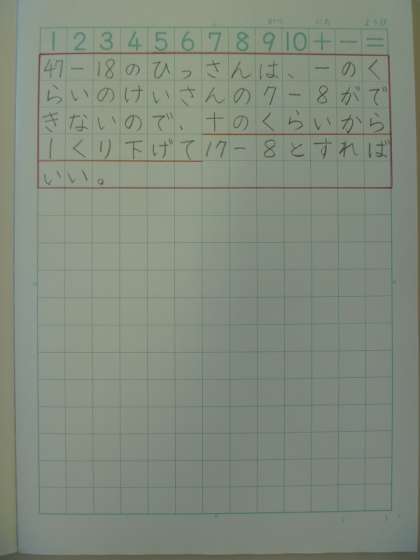 1 2 3 4 5 6 7 8 9 10 十 一 二
47-18のひっさんは、一のく
らいのけいさんの7-8がで
きないので、十のくらいから
1くり下げて17-8とすれば
いい。